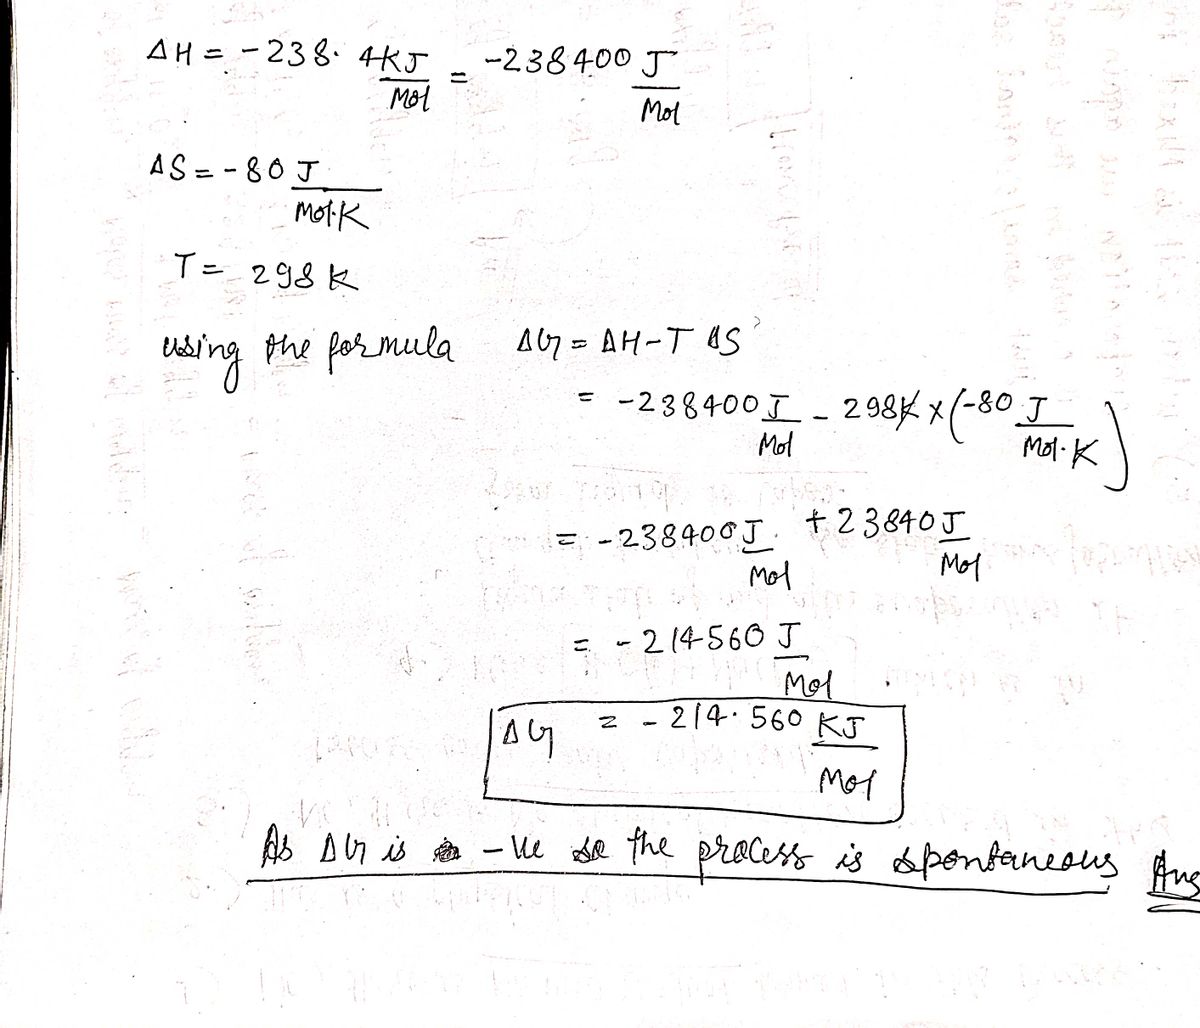 ΔH = -238. 4KJ/Mol = -238400 J/Mol
ΔS = -80 J/Mol·K
T = 298 K
using the formula ΔG = ΔH-T ΔS
= -238400 J/Mol - 298K x (-80 J/Mol·K)
= -238400 J/Mol + 23840 J/Mol
= -214560 J/Mol
ΔG = -214.560 KJ/Mol
As ΔG is -ve so the process is spontaneous Ans